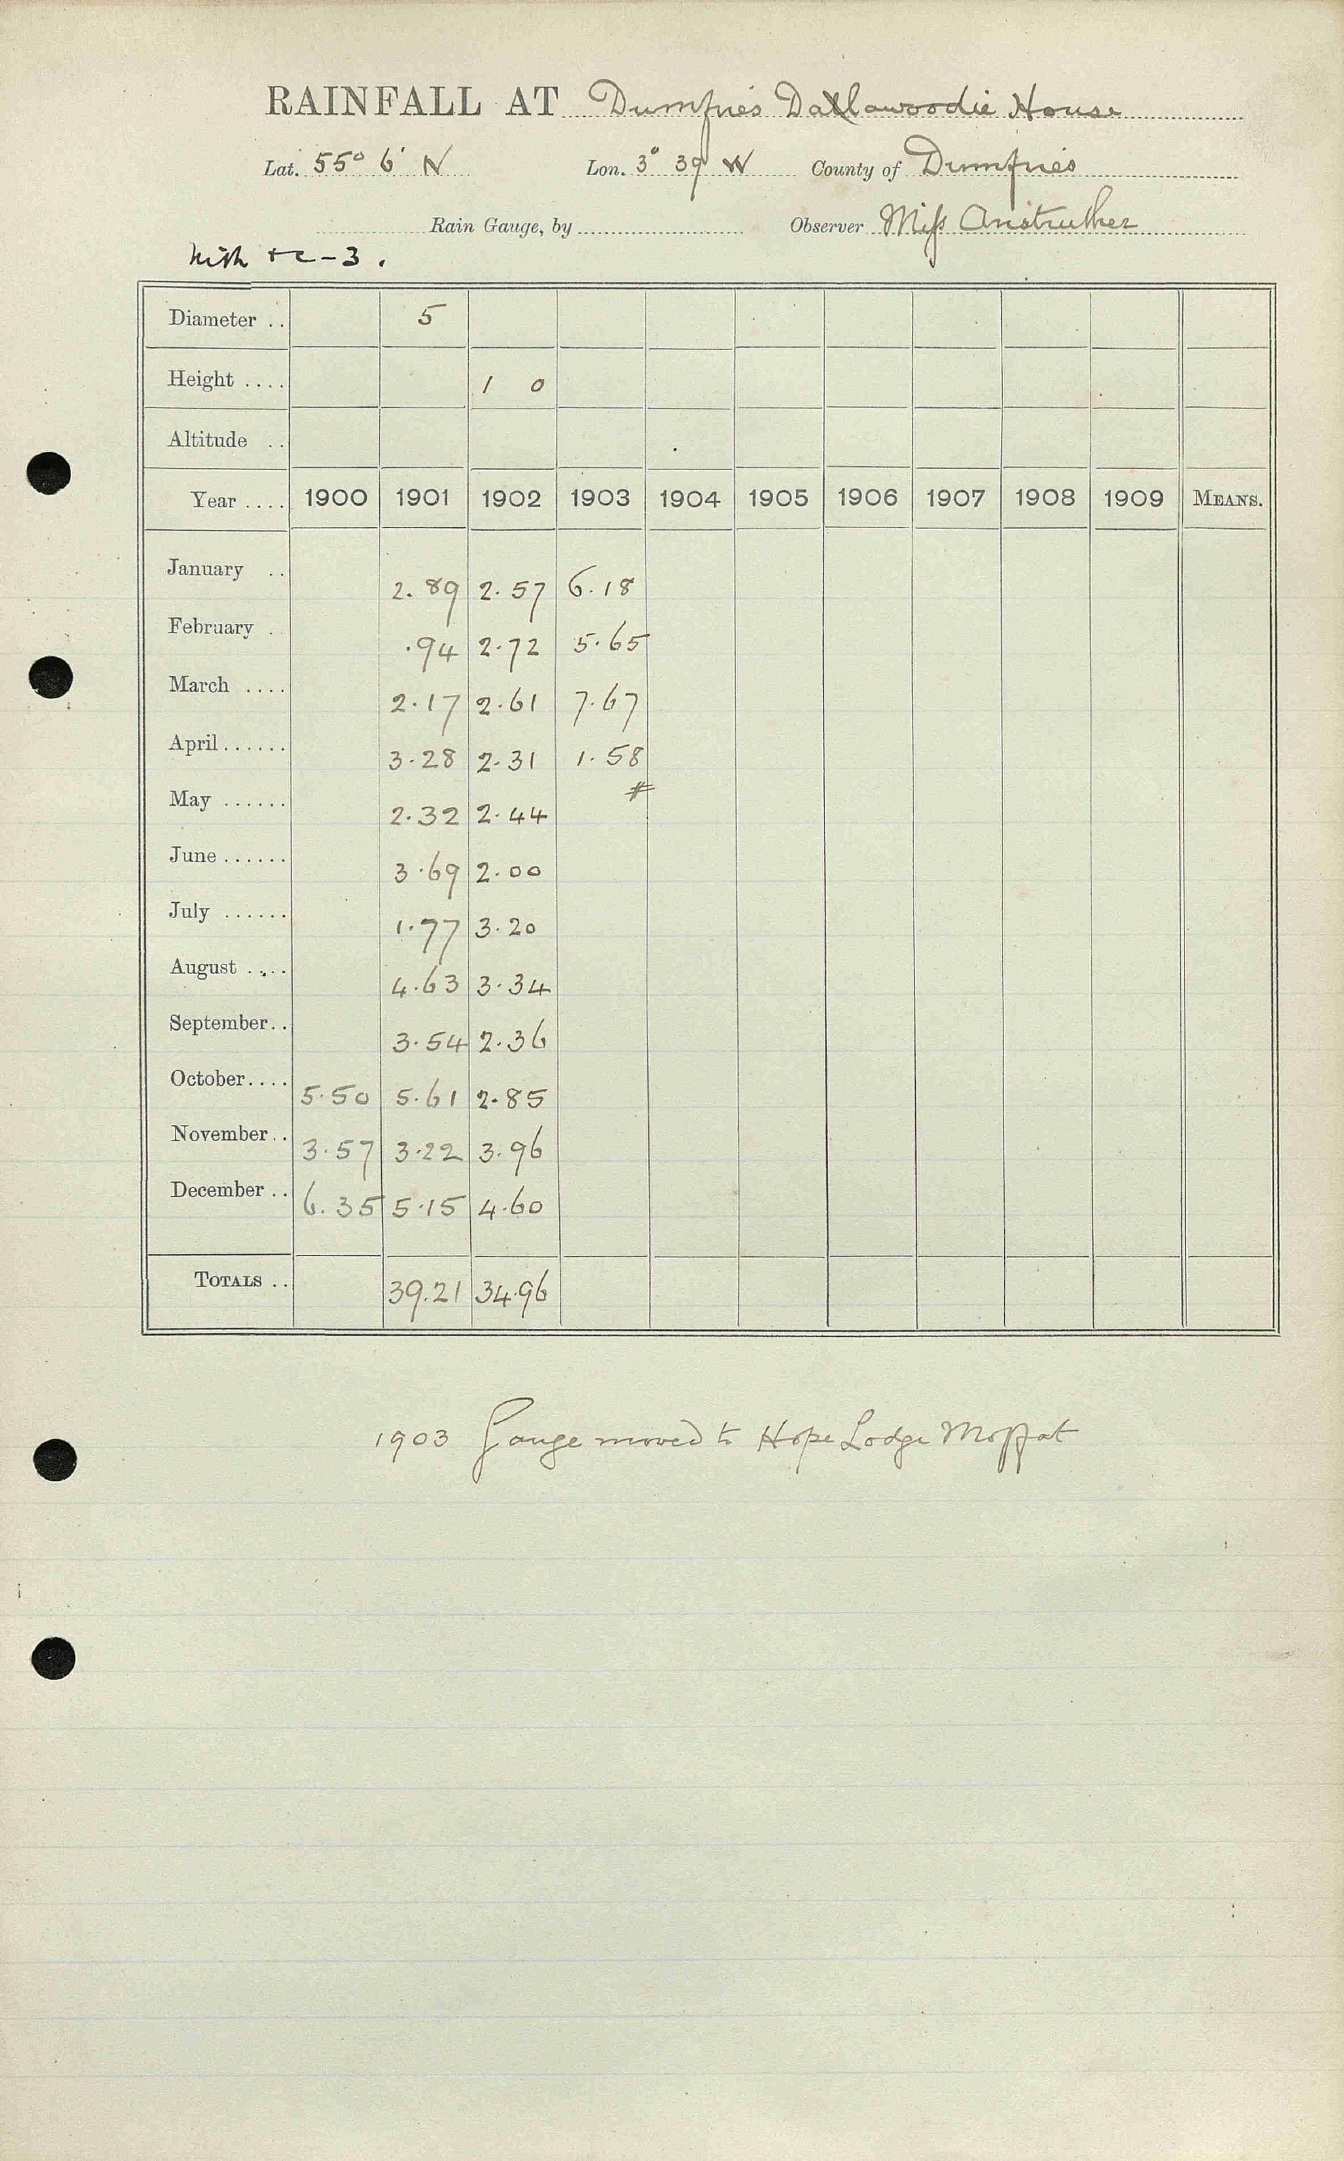 RAINFALL AT Dumfries Dallawoodie House
Lat. 55° 6' N Lon. 3° 39 W County of Dumfries
Rain Gauge, by Observer Miss Anstruther
Nith - 3.
Diameter .. 5
Height .... 1 0
Altitude ..
Year .... 1900 1901 1902 1903 1904 1905 1906 1907 1908 1909 MEANS.
January .. 2.89 2.57 6.18
February .. .94 2.72 5.65
March .... 2.17 2.61 7.67
April...... 3.28 2.31 1.58
May ...... 2.32 2.44 #
June...... 3.69 2.00
July ...... 1.77 3.20
August .... 4.63 3.34
September.. 3.54 2.36
October.... 5.50 5.61 2.85
November.. 3.57 3.22 3.96
December .. 6.35 5.15 4.60
TOTALS .. 39.21 34.96
1903 Gauge moved to Hope Lodge Moffat